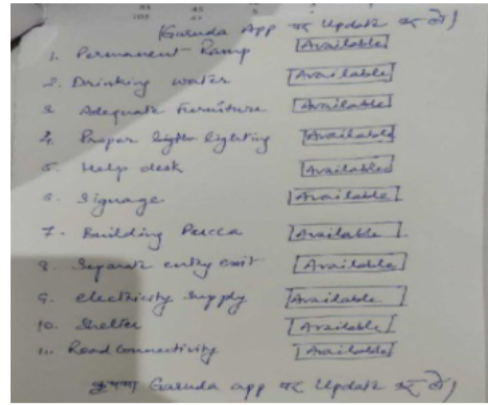 Garuda App पर Update कर दे)
1. Permanent Ramp [Available]
2. Drinking water [Available]
3. Adequate Furniture [Available]
4. Proper lighting [Available]
5. Help desk [Available]
6. Signage [Available]
7. Building Pucca [Available]
8. Separate entry exit [Available]
9. electricity supply [Available]
10. Shelter [Available]
11. Road connectivity [Available]
कृपया Garuda app पर Update कर दे)